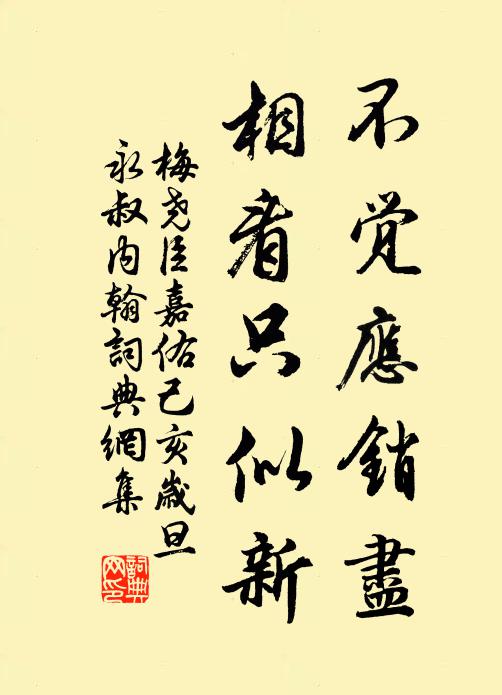 不觉應銷盡
相看只似新
梅尧臣嘉佑己亥歲旦
永叔内翰詞典網集
詞典网印